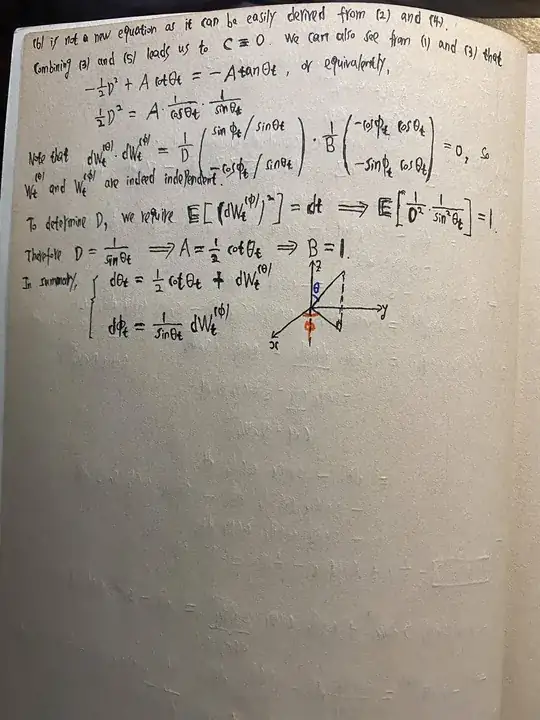 (6) is not a new equation as it can be easily derived from (2) and (4).
Combining (3) and (5) leads us to C ≡ 0. We can also see from (1) and (3) that
-½D² + A cotθt = -A tanθt, or equivalently,
½D² = A · 1/cosθt · 1/sinθt
Note that dWt^(θ) · dWt^(ϕ) = 1/D (sinϕt/sinθt, -cosϕt/sinθt) · 1/B (-cosϕt cosθt, -sinϕt cosθt) = 0, so
Wt^(θ) and Wt^(ϕ) are indeed independent.
To determine D, we require E[(dWt^(ϕ))²] = dt ⟹ E[1/D² · 1/sin²θt] = 1.
Therefore D = 1/sinθt ⟹ A = ½ cotθt ⟹ B = 1.
In summary, { dθt = ½ cotθt + dWt^(θ)
dϕt = 1/sinθt dWt^(ϕ)
z
θ
y
ϕ
x